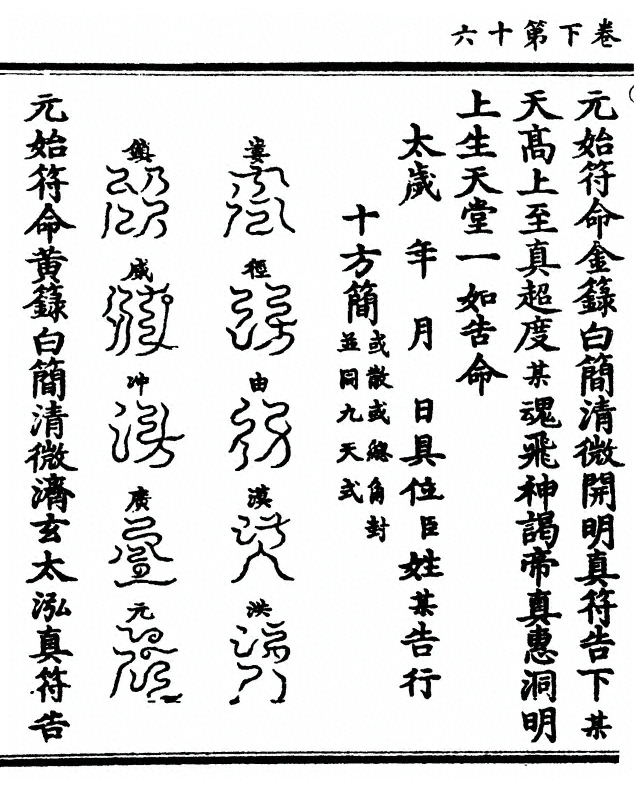 卷下第十六
元始符命金籙白簡清微開明真符告下某
天高上至真超度某魂飛神謁帝真惠洞明
上生天堂一如告命
太歲　年　月　日具位臣姓某告行
十方簡或散或總角封
並同九天式
婁　徑　由　漠　洪
鎮　威　冲　廣　元
元始符命黃籙白簡清微濟玄太泓真符告